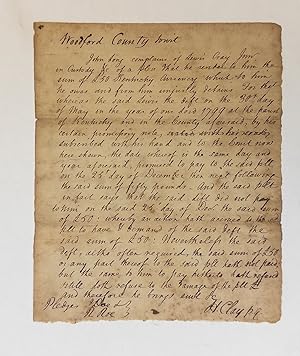 Woodford County Court
John Long complains of Lewis Craig Junr
in Custody &c of a plea that he render to him the
sum of £50 Kentucky Currency which to him
he owes and from him unjustly detains For that
whereas the said Lewis the deft on the 30th day
of May in the year of our Lord 1798 at the parish
of Kentucky and in the County aforesaid, by his
certain promissory note,
subscribed with his hand and to the Court now
here shewn, the date whereof is the same day and
year aforesaid, promised to pay to the said plt
on the 25th day of December then next following
the said sum of fifty pounds. And the said plt
in fact says that the said Deft did not pay
to him on the said 25th day of Decr the said sum
of £50. whereby an action hath accrued to the
plt to have & demand of the said Deft the
said sum of £50. Nevertheless the said
Deft, altho often required, the said sum of £50
or any part thereof to the said plt hath not paid
but the same to him to pay hitherto hath refused
still doth refuse to the damage of the plt £
and therefore he brings suit &c
Pledges Doe &
R. Roe
H Clay p.q.